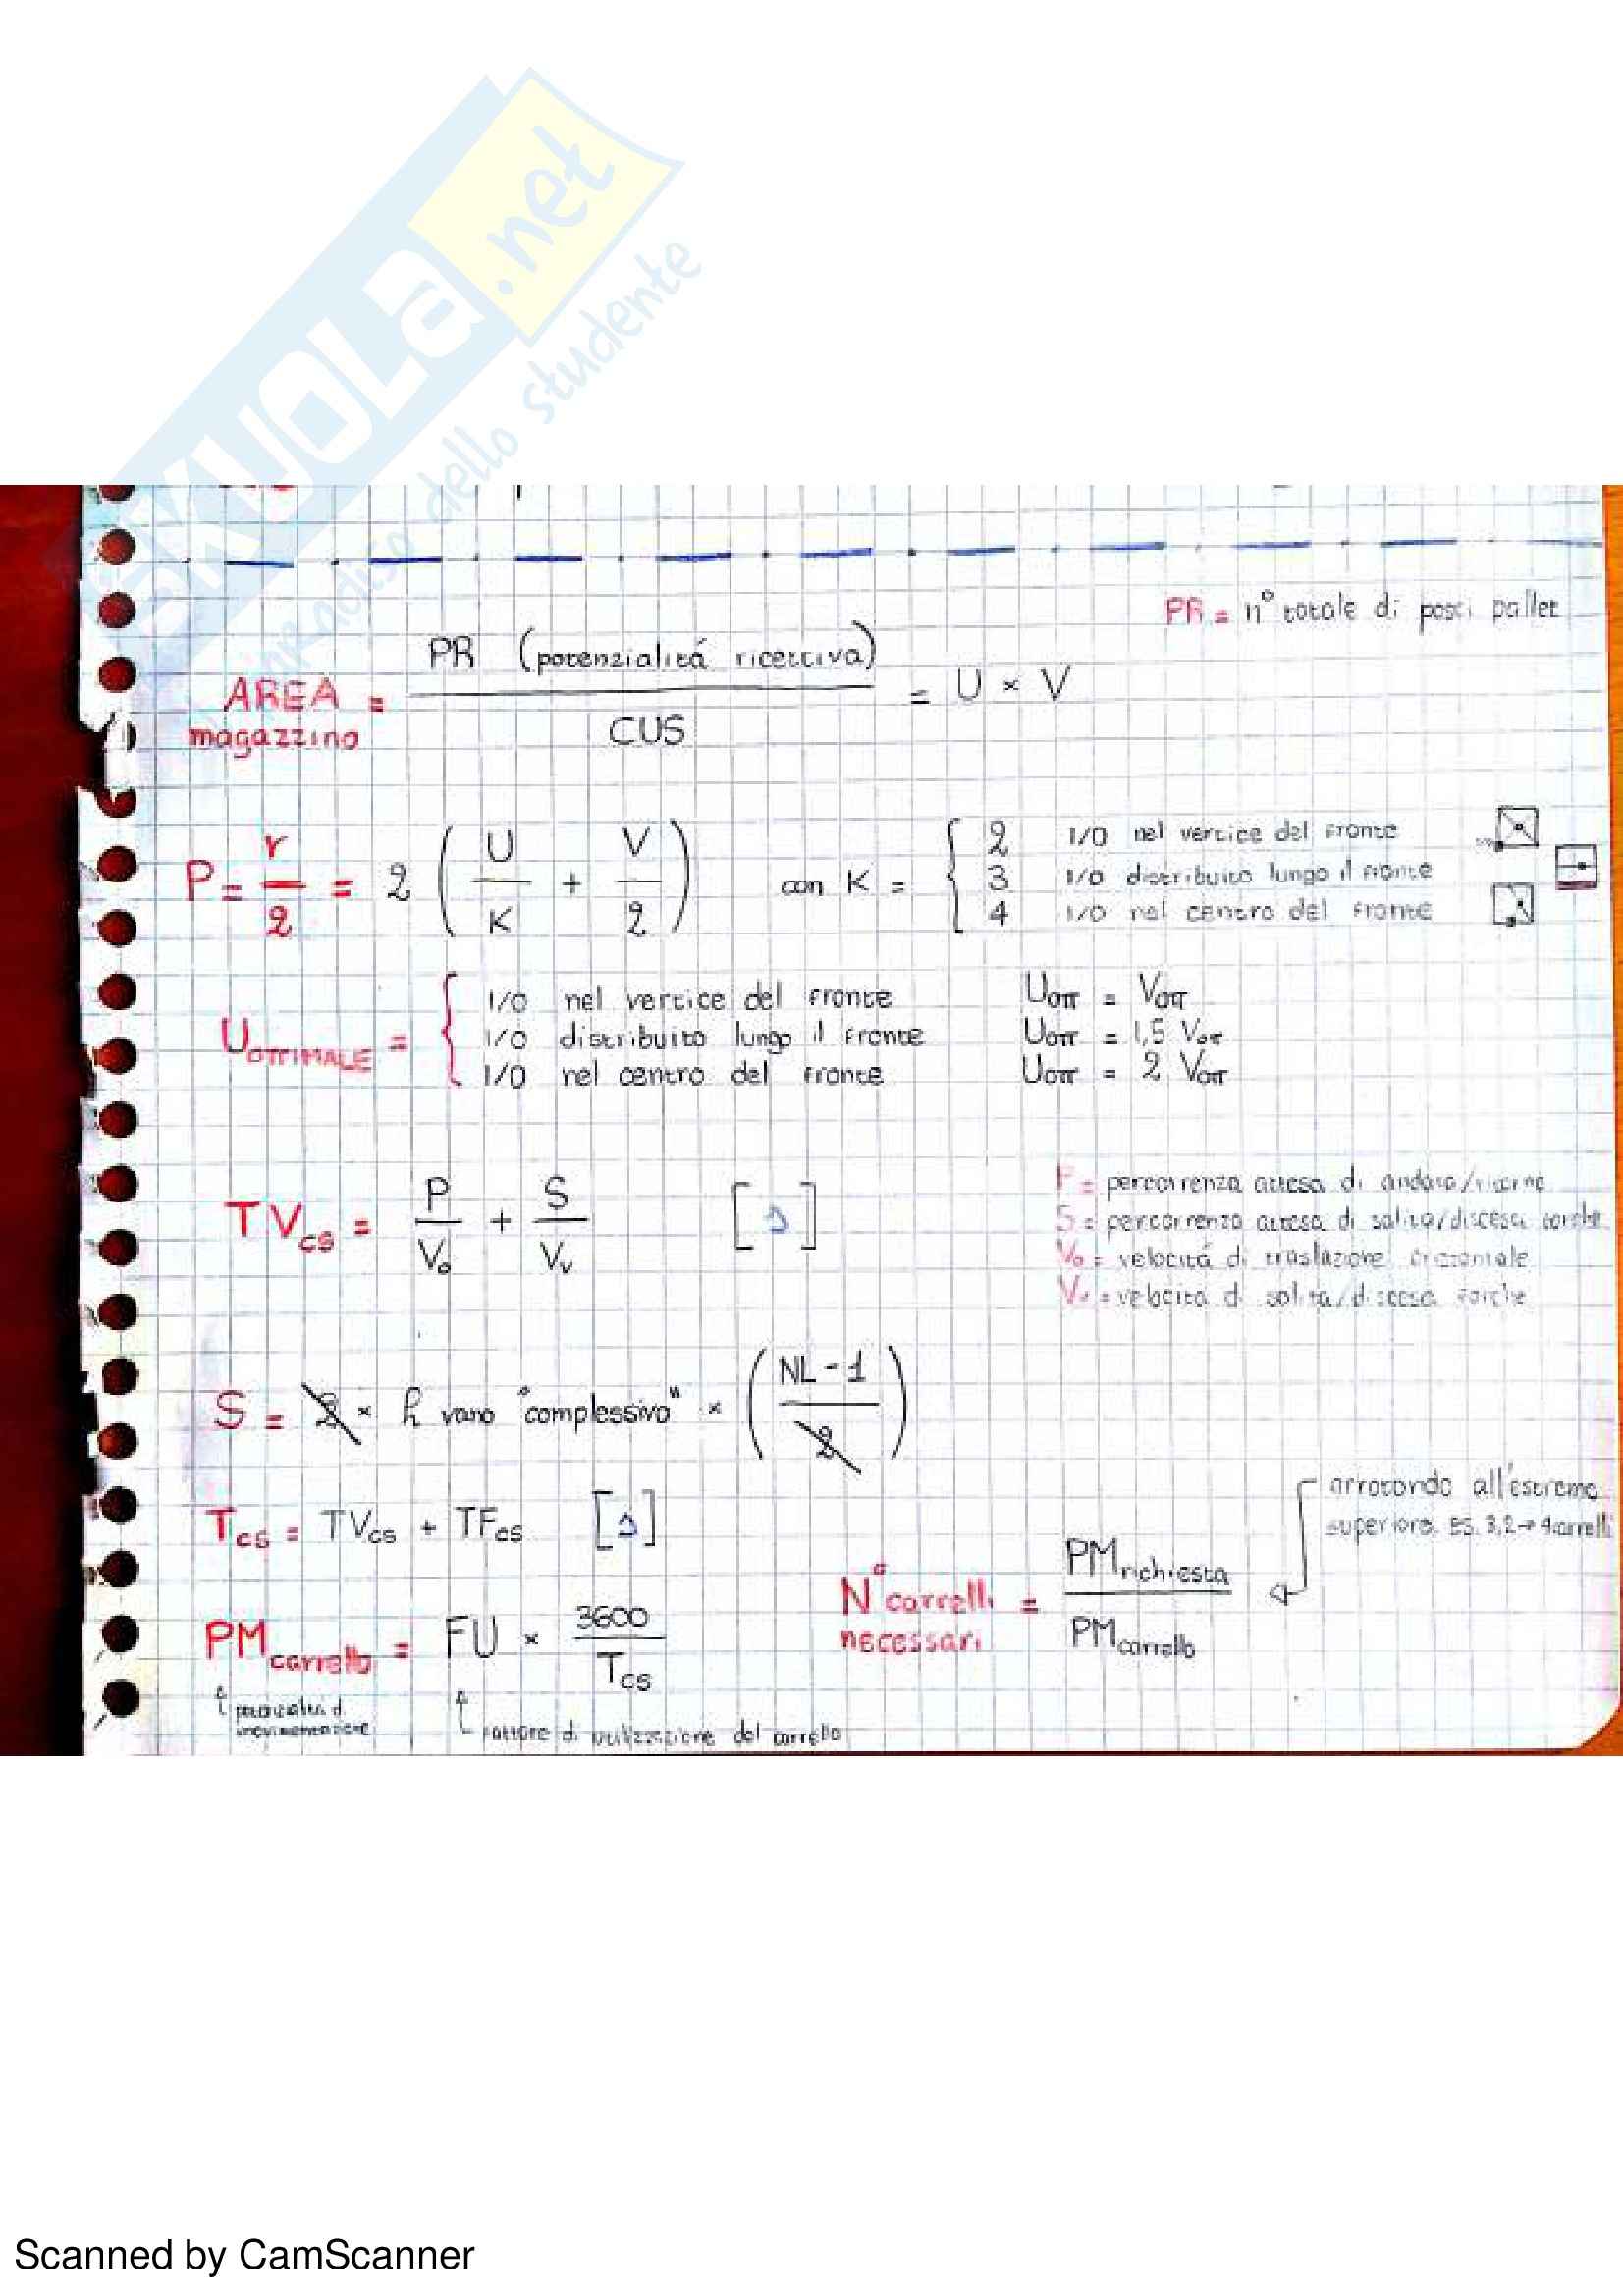 SKUOLA.net
dello studente
PR = n° totale di posti pallet
AREA magazzino = PR (potenzialitá ricettiva) / CUS = U × V
P = r/2 = 2 ( U/K + V/2 ) con K = {
2 I/O nel vertice del fronte
3 I/O distribuito lungo il fronte
4 I/O nel centro del fronte
U OTTIMALE = {
I/O nel vertice del fronte Uott = Vott
I/O distribuito lungo il fronte Uott = 1,5 Vott
I/O nel centro del fronte Uott = 2 Vott
TVcs = P/Vo + S/Vv [s]
P = percorrenza attesa di andata/ritorno
S = percorrenza attesa di salita/discesa forche
Vo = velocitá di traslazione orizzontale
Vv = velocitá di salita/discesa forche
S = 2 × h vano "complessivo" × ( NL - 1 / 2 )
Tcs = TVcs + TFcs [s]
arrotondo all'estremo
superiore. ES. 3,2 → 4 carrelli
N° carrelli necessari = PM richiesta / PM carrello
PM carrello = FU × 3600 / Tcs
potenzialitá di
movimentazione
fattore di utilizzazione del carrello
Scanned by CamScanner